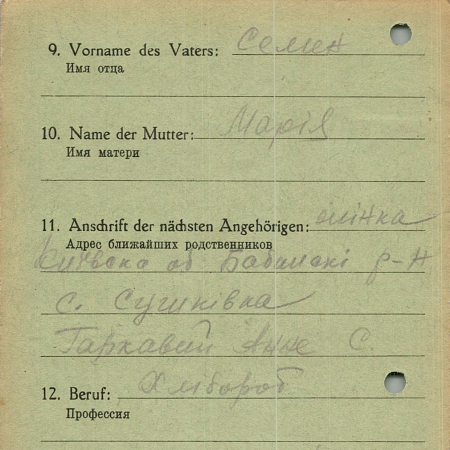 9. Vorname des Vaters: Семен
Имя отца
10. Name der Mutter: Марія
Имя матери
11. Anschrift der nächsten Angehörigen: жінка
Адрес ближайших родственников
Київська об Бабанскі р-н
с. Сушківка
Гаркавий Анне С.
12. Beruf: Хлібороб
Профессия